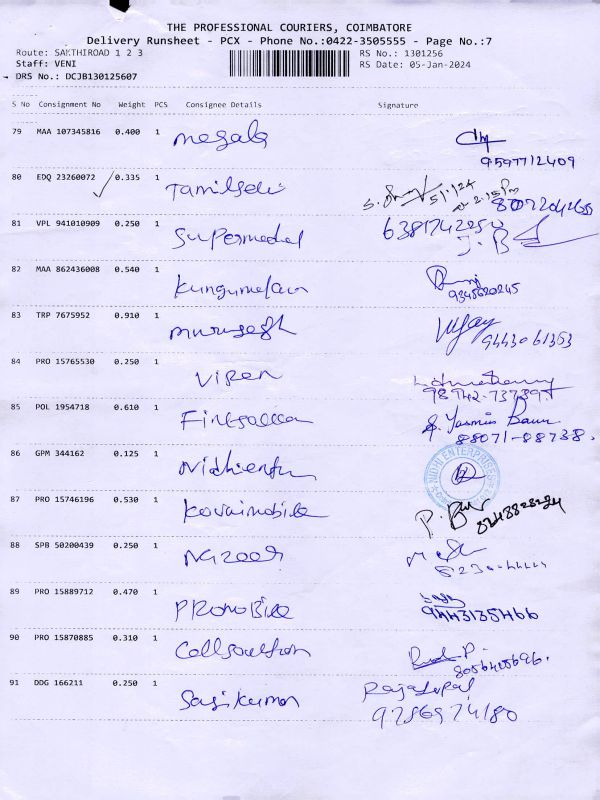 THE PROFESSIONAL COURIERS, COIMBATORE
Delivery Runsheet - PCX - Phone No.:0422-3505555 - Page No.:7
Route: SAKTHIROAD 1 2 3 RS No.: 1301256
Staff: VENI RS Date: 05-Jan-2024
DRS No.: DCJB130125607
S No Consignment No Weight PCS Consignee Details Signature
79 MAA 107345816 0.400 1 Megala
9597712409
80 EDQ 23260072 0.335 1 Tamilselvi 5/1/24 2.15 Pm
81 VPL 941010909 0.250 1 Supermedal 6381742250
J. B
82 MAA 862436008 0.540 1 Kungumelam
9345620245
83 TRP 7675952 0.910 1 Murugesh Vijay
9443061353
84 PRO 15765530 0.250 1 Viren
85 POL 1954718 0.610 1 S. Yasmin Banu
88071-88738.
86 GPM 344162 0.125 1 NIDHI ENTERPRISES
87 PRO 15746196 0.530 1 Kovaimobile P.
88 SPB 50200439 0.250 1
89 PRO 15889712 0.470 1 PROMOBILE
9443135466
90 PRO 15870885 0.310 1 Callsoultion P.
8056425696.
91 DDG 166211 0.250 1 Sasikumar Rajagopal
9786974180